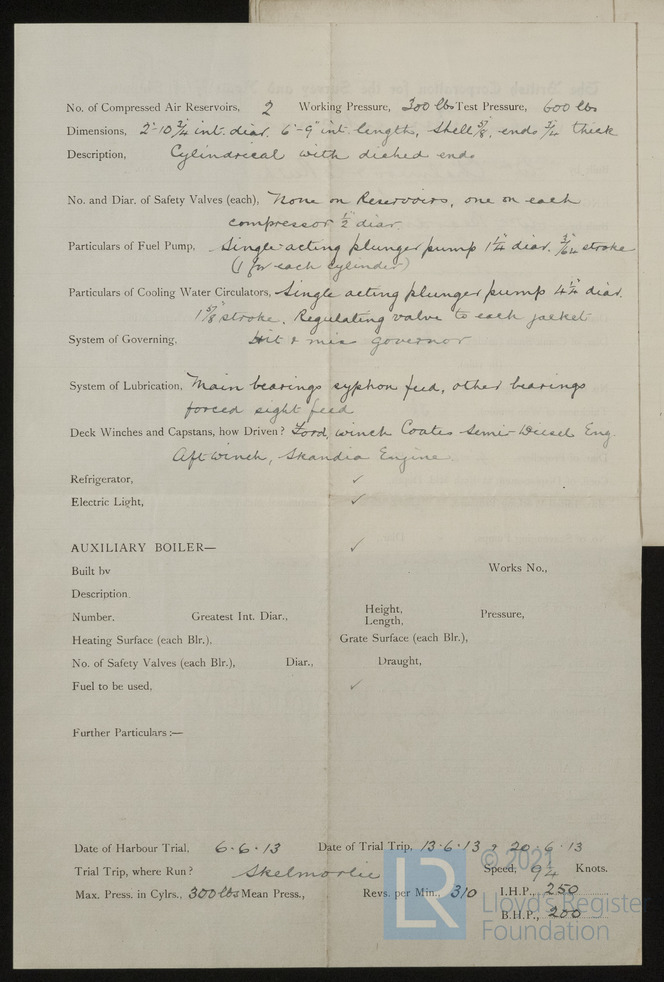 No. of Compressed Air Reservoirs, 2 Working Pressure, 300 lbs Test Pressure, 600 lbs
Dimensions, 2'-10 3/4" int. diar. 6'-9" int. length, shell 5/8", ends 3/4" thick
Description, Cylindrical with dished ends
No. and Diar. of Safety Valves (each), None on Reservoirs, one on each
compressor 1/2" diar.
Particulars of Fuel Pump, Single acting plunger pump 1 1/4" diar. stroke
(1 for each cylinder)
Particulars of Cooling Water Circulators, Single acting plunger pump 4 1/4" diar.
1 5/8" stroke. Regulating valve to each jacket
System of Governing, Hit & miss governor
System of Lubrication, Main bearings syphon feed, other bearings
forced sight feed
Deck Winches and Capstans, how Driven? Ford, winch Coates Semi-Diesel Eng.
Aft winch, Skandia Engine
Refrigerator, ✓
Electric Light, ✓
AUXILIARY BOILER— ✓
Built by Works No.,
Description
Number. Greatest Int. Diar., Height, Length, Pressure,
Heating Surface (each Blr.), Grate Surface (each Blr.),
No. of Safety Valves (each Blr.), Diar., Draught,
Fuel to be used, ✓
Further Particulars :—
Date of Harbour Trial, 6.6.13 Date of Trial Trip, 13.6.13 & 20.6.13
Trial Trip, where Run? Skelmorlie Speed, 9 1/4 Knots.
Max. Press. in Cylrs., 300 lbs Mean Press., Revs. per Min., 310 I.H.P., 250
B.H.P., 200
© 2021
LR
Lloyd's Register
Foundation